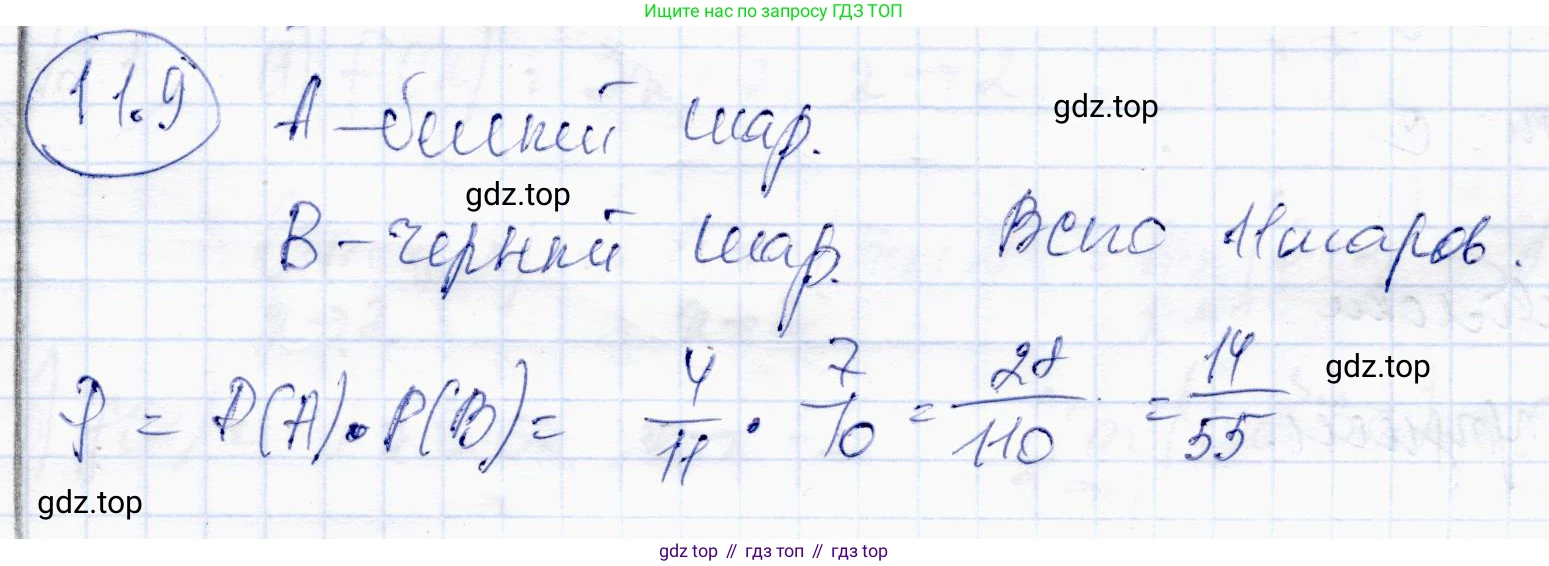 Ищите нас по запросу ГДЗ ТОП
11.9 А – белый шар.
gdz.top
gdz.top
В – черный шар. Всего 11 шаров.
P = P(A) · P(B) = 4/11 · 7/10 = 28/110 = 14/55
gdz.top
gdz.top
gdz top // гдз топ // gdz top